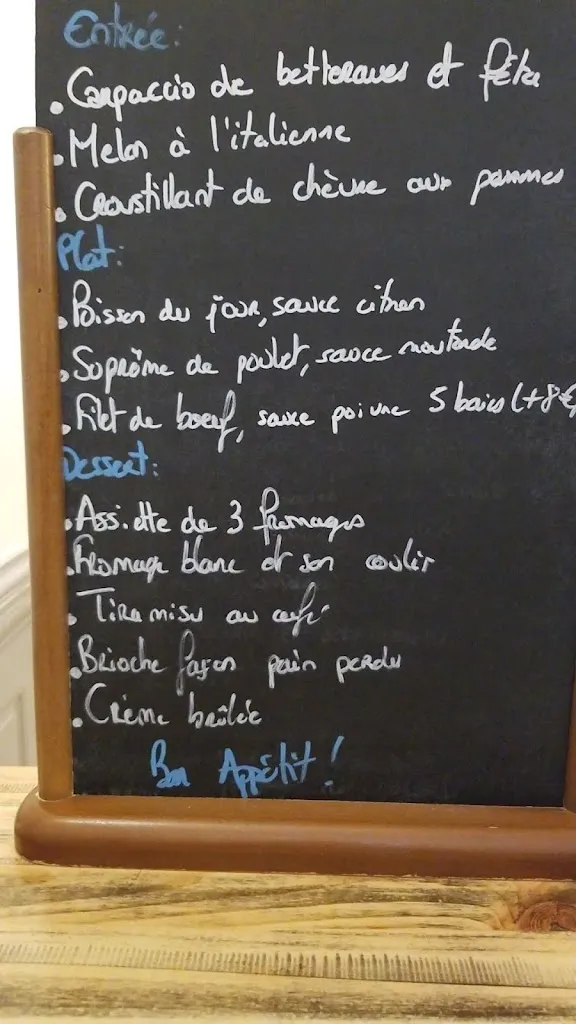 Entrée:
. Carpaccio de betteraves et féta
. Melon à l'italienne
. Croustillant de chèvre aux pommes
Plat:
. Poisson du jour, sauce citron
. Suprême de poulet, sauce moutarde
. Filet de boeuf, sauce poivre 5 baies (+8€)
Dessert:
. Assiette de 3 fromages
. Fromage blanc et son coulis
. Tiramisu au café
. Brioche façon pain perdu
. Crème brûlée
Bon Appétit !